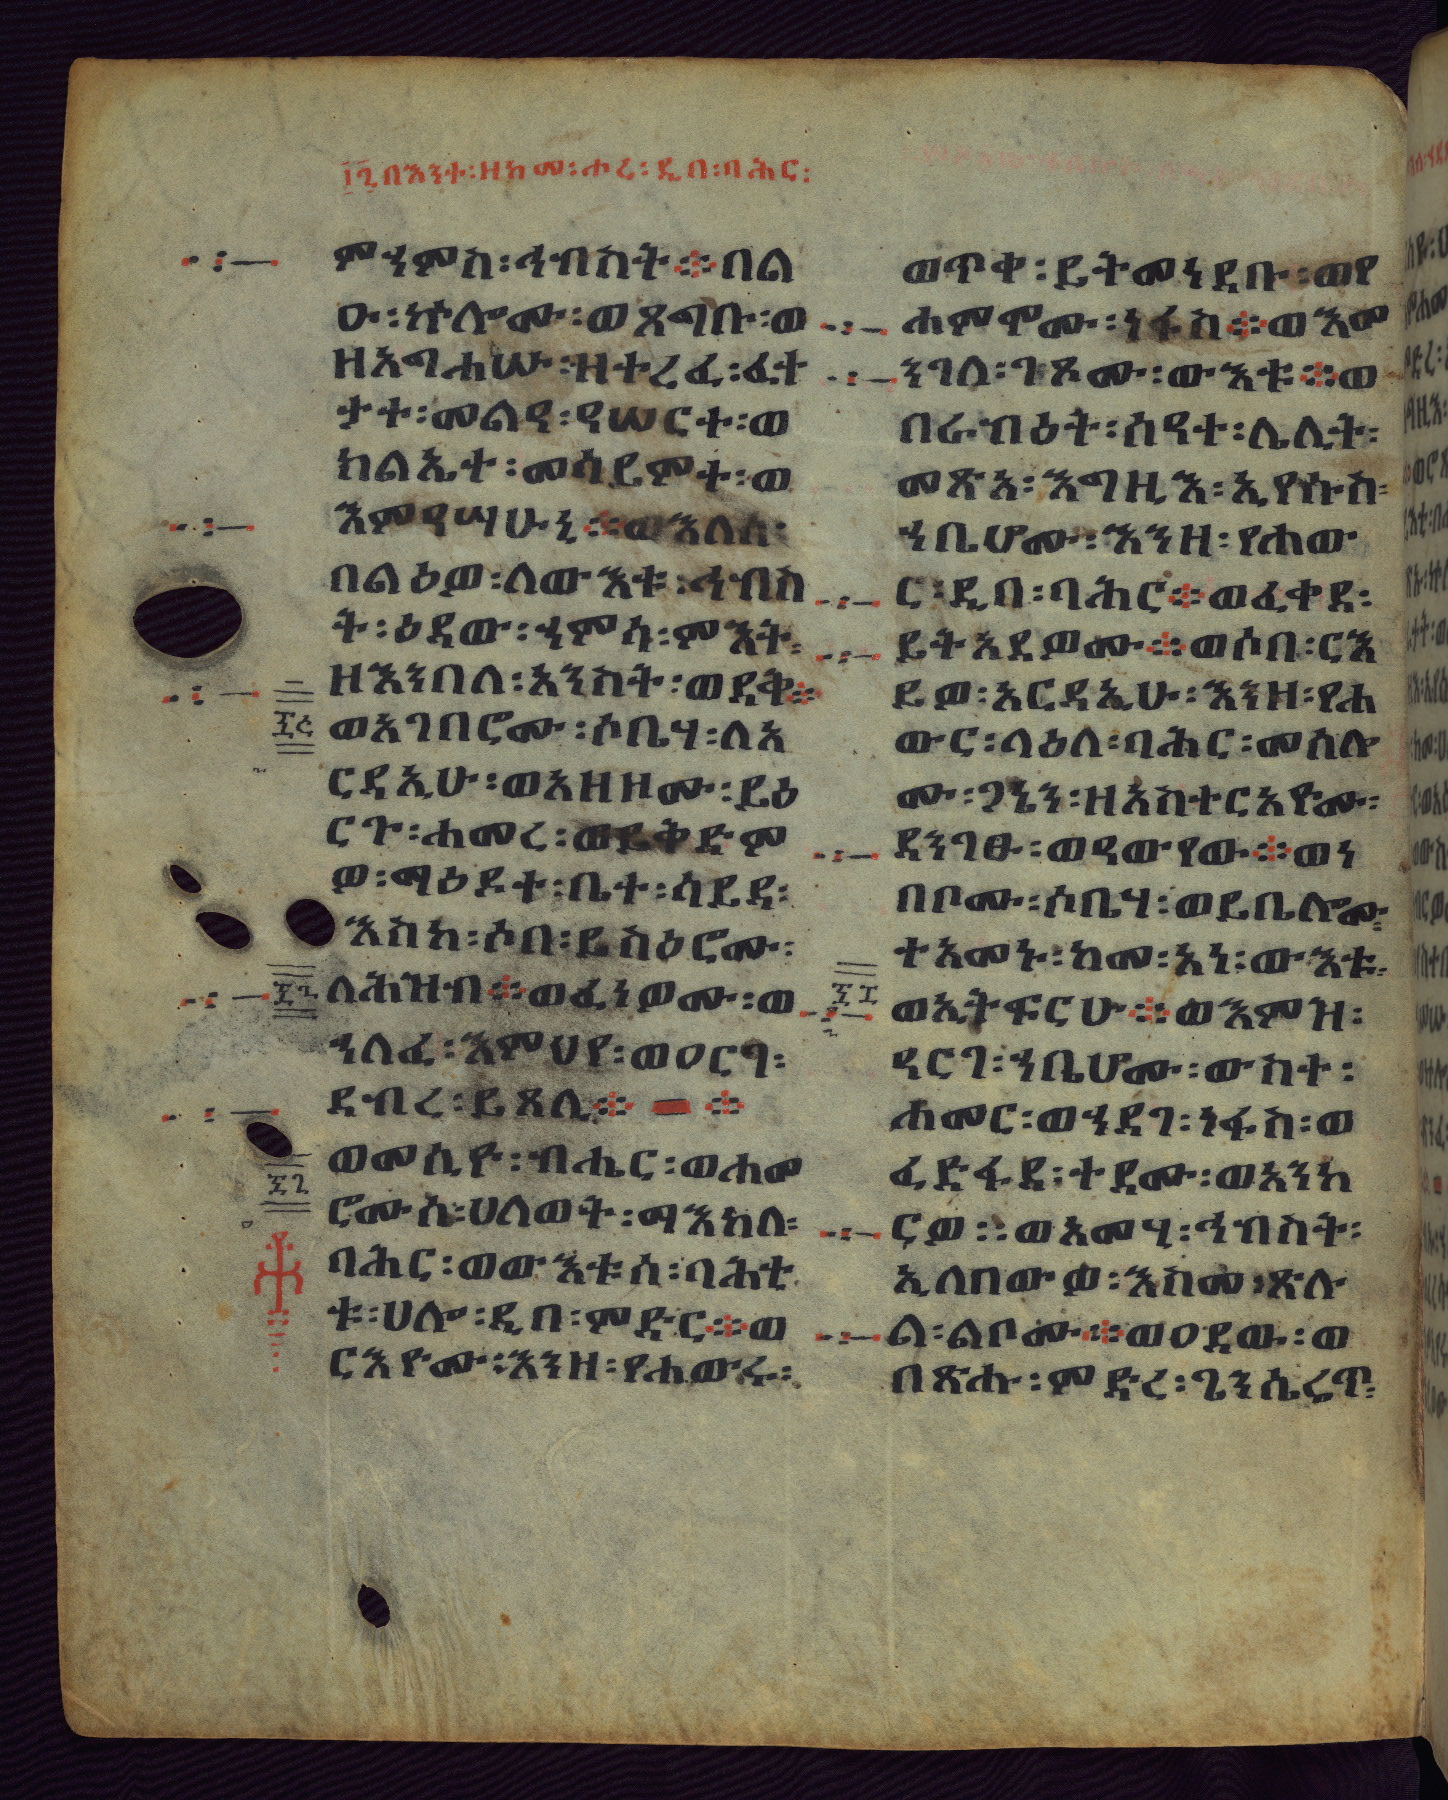 ፲፯በእንተ፡ዘከመ፡ሖረ፡ዲበ፡ባሕር፡
ምኀምስ፡ኅብስት፨በል
ዑ፡ኵሎሙ፡ወጸግቡ፡ወ
ዘአግሐሡ፡ዘተረፈ፡ፈተ
ታተ፡መልዐ፡ዐሠርተ፡ወ
ክልኤተ፡መሳይምተ፡ወ
እምዓሣሁኒ፨ወእለሰ፡
በልዕዎ፡ለውእቱ፡ኅብስ
ት፡ዕደው፡ኀምሳ፡ምእት፡
ዘእንበለ፡አንስት፡ወደቅ፨
፵፮
ወአገበሮሙ፡ሶቤሃ፡ለአ
ርዳኢሁ፡ወአዘዞሙ፡ይዕ
ርጉ፡ሐመረ፡ወይቅድም
ዎ፡ማዕዶተ፡ቤተ፡ሳይዳ፡
እስከ፡ሶበ፡ይስዕሮሙ፡
ለሕዝብ፨ወፈነዎሙ፡ወ
ኀለፈ፡እምህየ፡ወዐርገ፡
ደብረ፡ይጸሊ፨ ፨
ወመስዮ፡ብሔር፡ወሐመ
ሮሙሰ፡ሀለወት፡ማእከለ፡
ባሕር፡ወውእቱሰ፡ባሕቲ
ቱ፡ሀሎ፡ዲበ፡ምድር፨ወ
ርእዮሙ፡እንዘ፡የሐውሩ፡
ወጥቀ፡ይትመነደቡ፡ወየ
ሐምሞሙ፡ነፋስ፨ወእመ
ንገለ፡ገጾሙ፡ውእቱ፨ወ
በራብዕት፡ሰዓተ፡ሌሊት፡
መጽአ፡እግዚእ፡ኢየሱስ፡
ኀቤሆሙ፡እንዘ፡የሐው
ር፡ዲበ፡ባሕር፨ወፈቀደ፡
ይትአደዎሙ፨ወሶበ፡ርእ
ይዎ፡አርዳኢሁ፡እንዘ፡የሐ
ውር፡ላዕለ፡ባሕር፡መስሎ
ሙ፡ጋኔን፡ዘአስተርአዮሙ፡
ደንገፁ፡ወዓውየው፨ወነ
በቦሙ፡ሶቤሃ፡ወይቤሎሙ፡
ተአመኑ፡ከመ፡አነ፡ውእቱ፡
ወኢትፍርሁ፨ወእምዝ፡
ዓርገ፡ኀቤሆሙ፡ውስተ፡
ሐመር፡ወኀደገ፡ነፋስ፡ወ
ፈድፋደ፡ተደሙ፡ወአንከ
ርዎ፡፡ወእመሂ፡ኅብስት፡
ኢለበውዎ፡እስመ፡ጽሉ
ል፡ልቦሙ፨ወዐደው፡ወ
በጽሑ፡ምድረ፡ጌንሴሬጥ፡